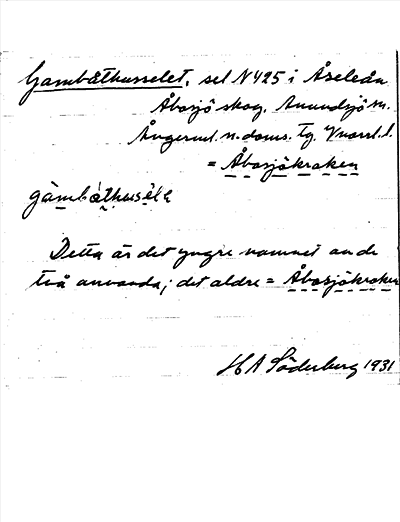 Gambåthusselet, sel N425 i Åseleån
Åbosjö skog, Anundsjö sn.
Ångerml. n. doms. tg. Vnorrl. l.
= Åbosjökroken
gàmbåthusèlə
Detta är det yngre namnet av de
två använda; det äldre = Åbosjökroken
H A Söderberg 1931